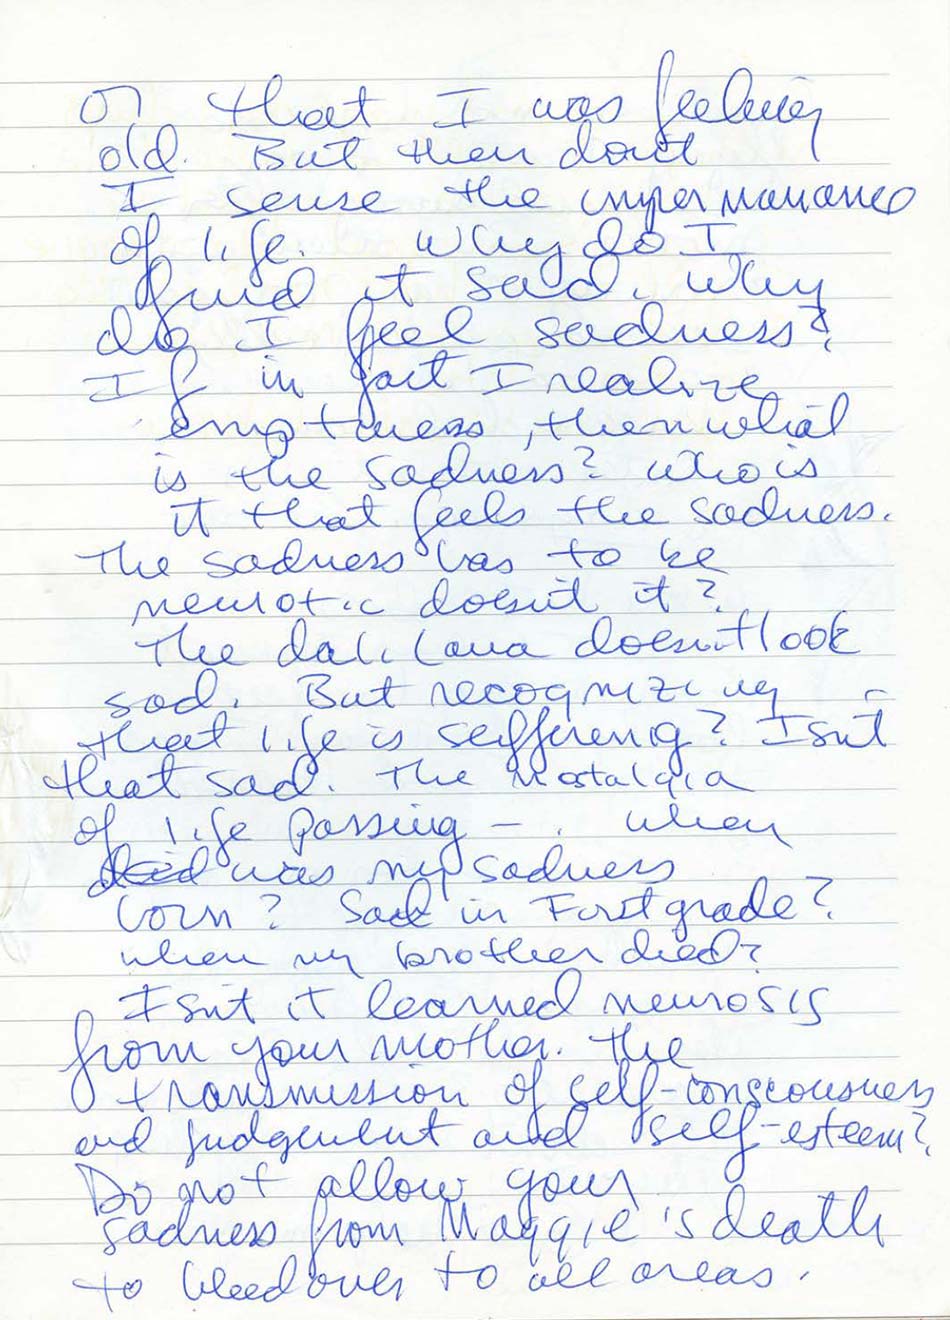 or that I was feeling
old. But then don't
I sense the impermanance
of life. Why do I
find it sad. Why
do I feel sadness?
If in fact I realize
emptiness, then what
is the sadness? Who is
it that feels the sadness.
The sadness has to be
neurotic doesn't it?
The dali lama doesn't look
sad. But recognizing
that life is suffering? Isn't
that sad. The nostalgia
of life passing – . When
was my sadness
born? Sad in First grade?
when my brother died?
Isn't it learned neurosis
from your mother. The
transmission of self-consciousness
and judgement and self-esteem?
Do not allow your
sadness from Maggie's death
to bleed over to all areas.